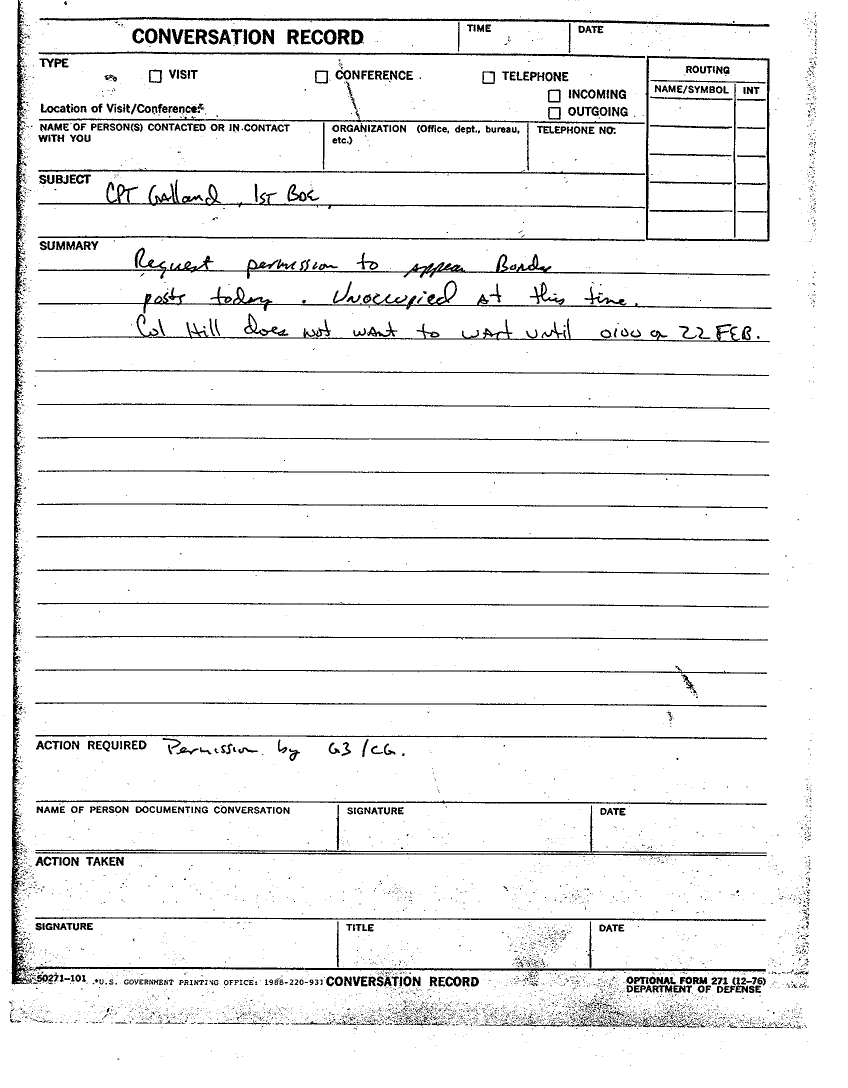 CONVERSATION RECORD
TIME
DATE
TYPE
VISIT
CONFERENCE
TELEPHONE
INCOMING
OUTGOING
ROUTING
NAME/SYMBOL
INT
Location of Visit/Conference:
NAME OF PERSON(S) CONTACTED OR IN CONTACT
WITH YOU
ORGANIZATION (Office, dept., bureau,
etc.)
TELEPHONE NO:
SUBJECT
CPT Galland, 1ST BDE
SUMMARY
Request permission to appear Border
posts today. Unoccupied at this time.
Col Hill does not want to wait until 0100 22 FEB.
ACTION REQUIRED Permission by G3/CG.
NAME OF PERSON DOCUMENTING CONVERSATION
SIGNATURE
DATE
ACTION TAKEN
SIGNATURE
TITLE
DATE
50271-101
*U.S. GOVERNMENT PRINTING OFFICE: 1988-220-931
CONVERSATION RECORD
OPTIONAL FORM 271 (12-76)
DEPARTMENT OF DEFENSE